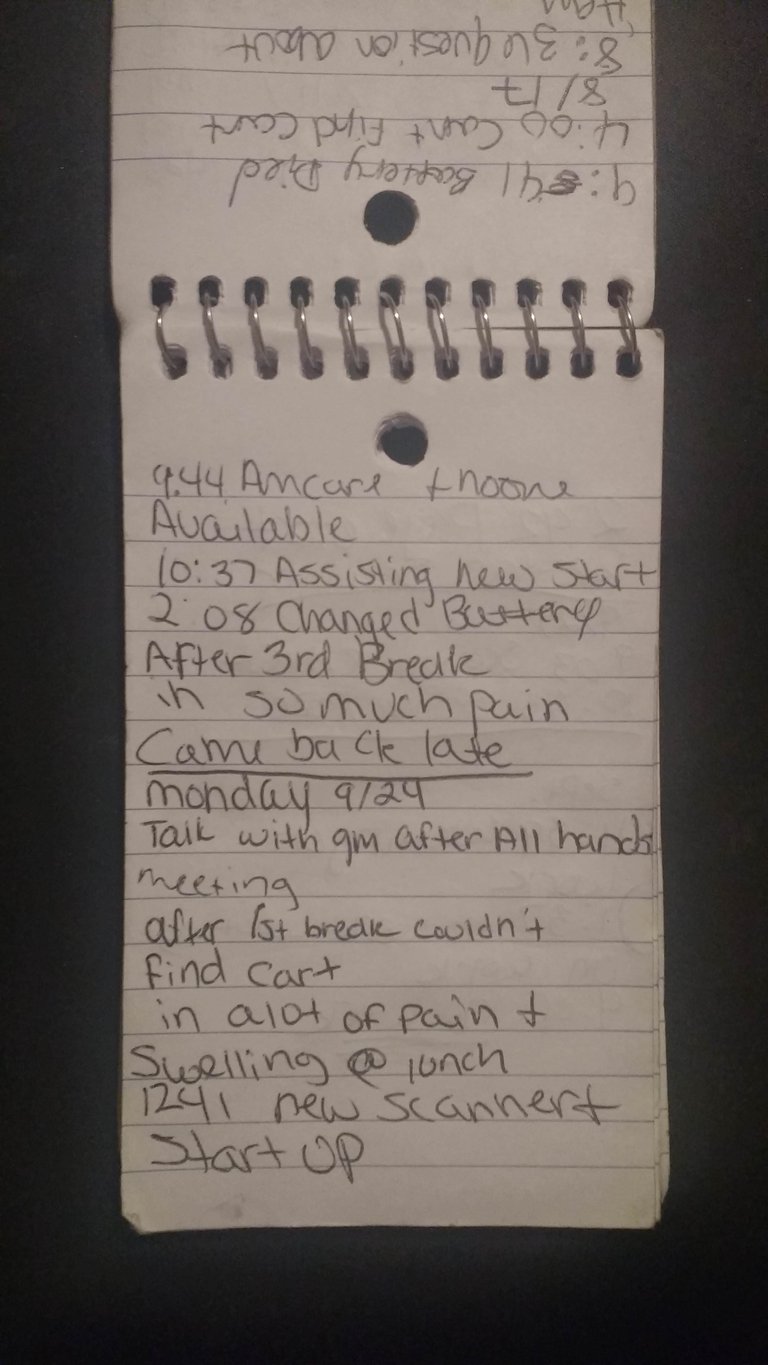 9:41 Battery Died
4:00 Can't Find Cart
8/17
8:36 question about
9:44 Amcare + noone
Available
10:37 Assisting new start
2:08 Changed Battery
After 3rd Break
in so much pain
Came back late
monday 9/24
Talk with gm after All hands
meeting
after 1st break couldn't
find cart
in alot of pain +
Swelling @ lunch
1241 new scanner +
Start UP